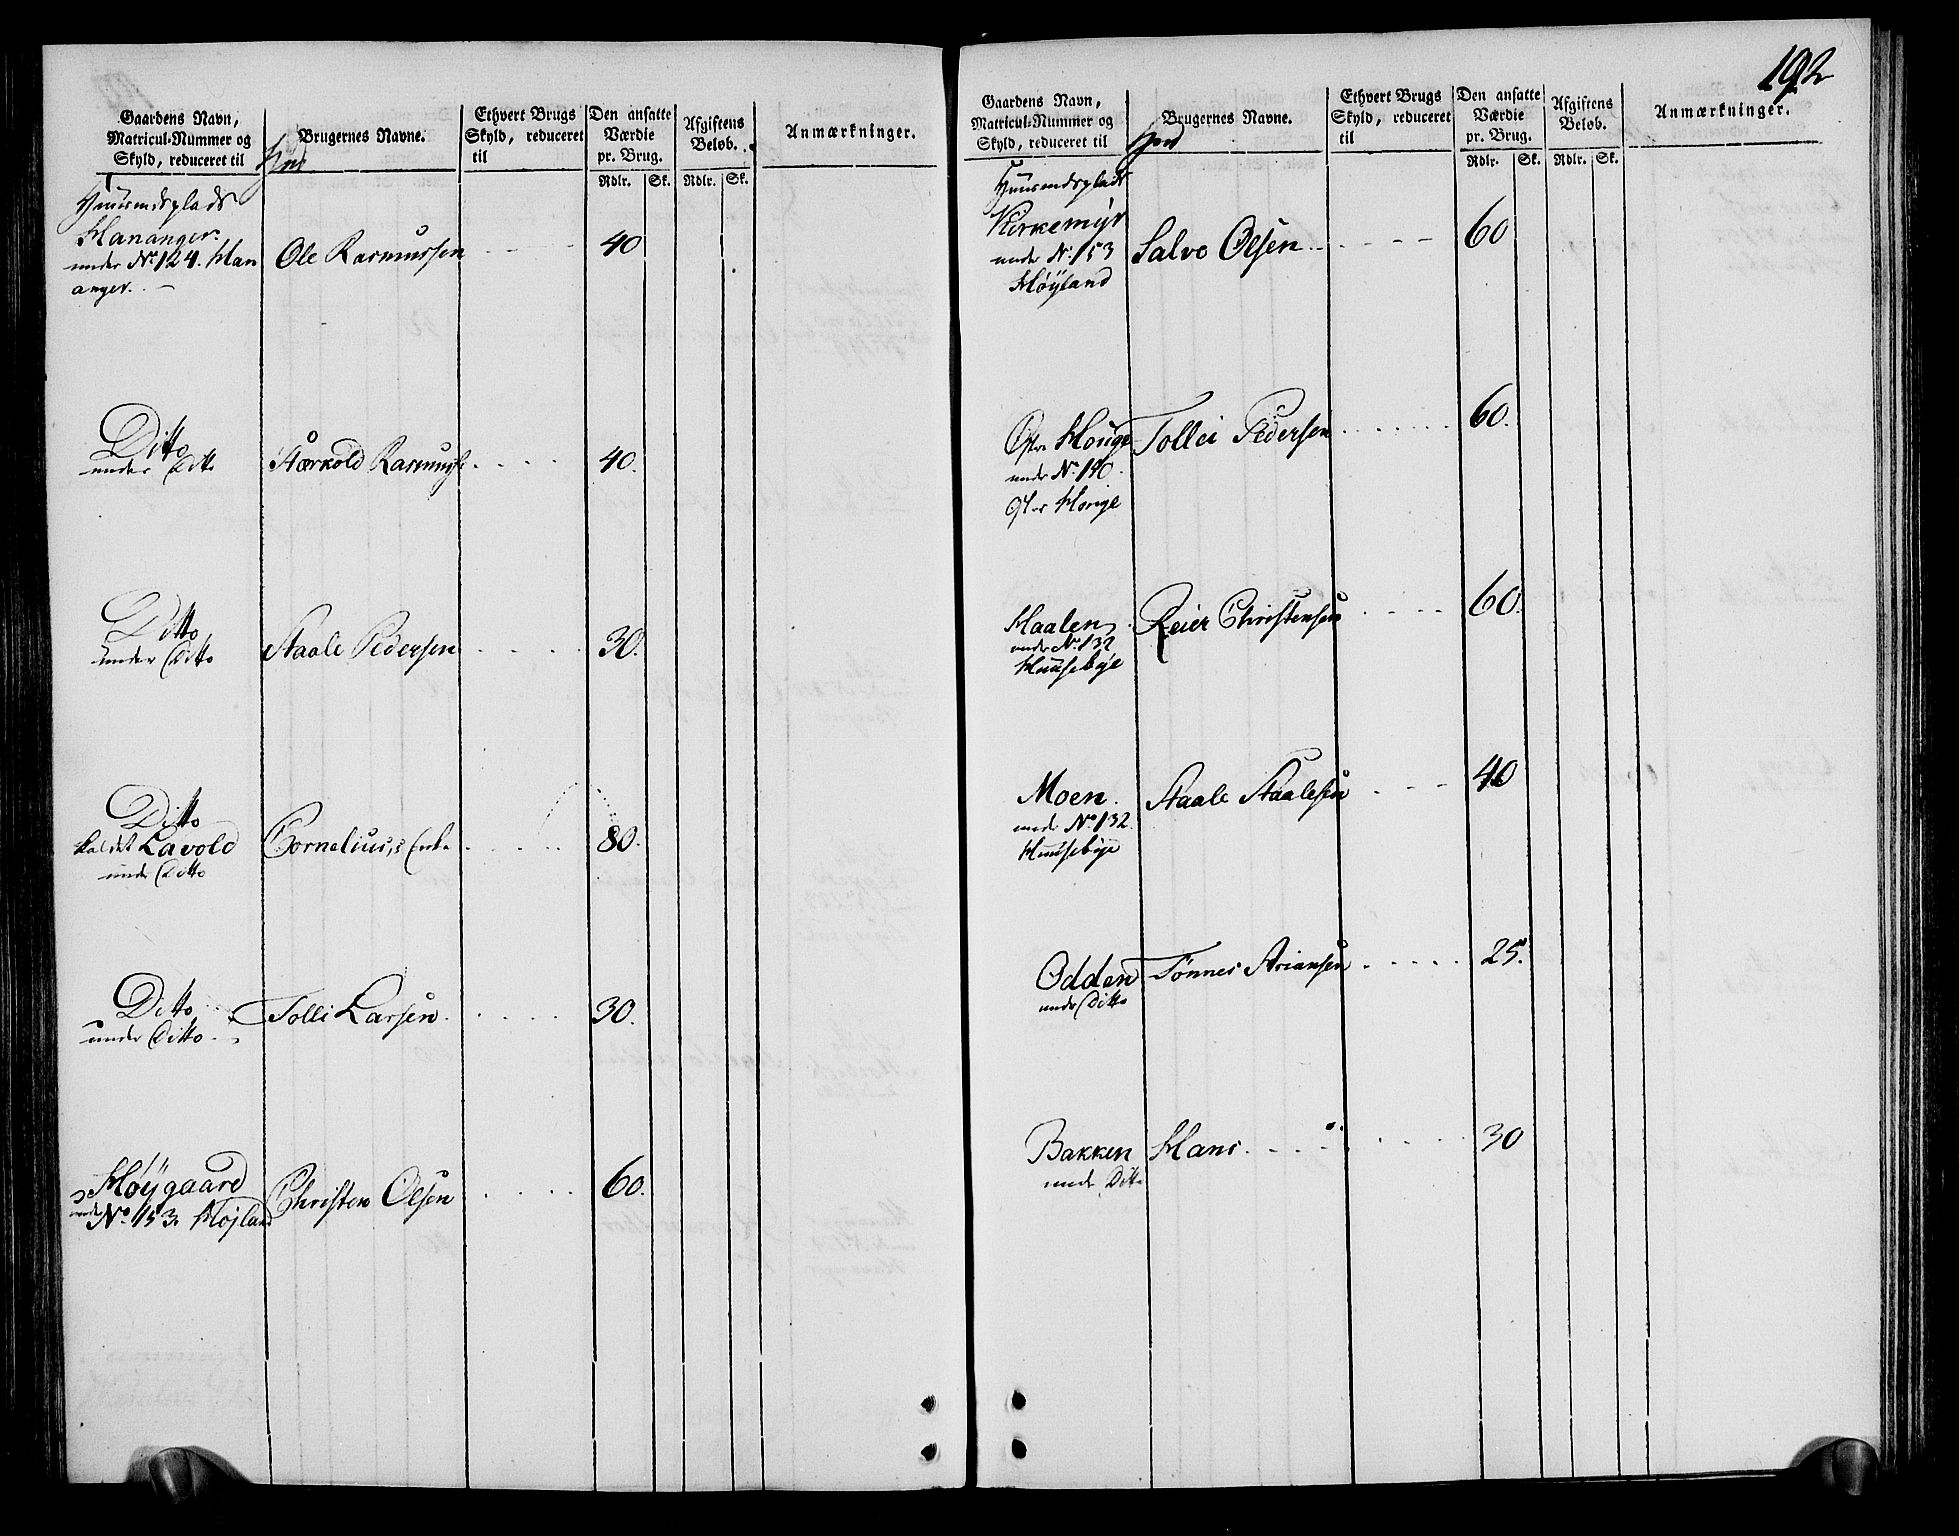 Gaardens Navn,
Matricul-Nummer og
Skyld, reduceret til
Brugernes Navne.
Ethvert Brugs
Skyld, reduceret
til
Den ansatte
Værdie
pr. Brug.
Afgiftens
Beløb.
Anmærkninger.
Rdlr. Sk. Rdlr. Sk.
Huusmdsplads
Hananger.
under No 124. Han
anger.
Ole Rasmussen 40
Ditto
under Ditto
Stærkold Rasmuss 40.
Ditto
under Ditto
Staale Pedersen 30.
Ditto
kaldet Lavold
under Ditto
Cornelius,s Enke 80.
Ditto
under Ditto
Tolli Larsen 30.
Høÿgaard
under
No 153. Højland
Christen Olsen 60.
192
Gaardens Navn,
Matricul-Nummer og
Skyld, reduceret til
Brugernes Navne.
Ethvert Brugs
Skyld, reduceret
til
Den ansatte
Værdie
pr. Brug.
Afgiftens
Beløb.
Anmærkninger.
Rdlr. Sk. Rdlr. Sk.
Huusmdsplads
Kirkemÿr
under No 153
Høÿland
Salve Olsen 60
Oster Houge
under No 140.
Oster Houge
Tollei Pedersen 60.
Haalen
under No 132
Huusebÿe
Reier Christensen 60.
Moen.
under No 132.
Huusebÿe
Staale Staalesen 40
Odden
under Ditto
Tönnes Ariansen 25.
Bakken
under Ditto
Hans 30